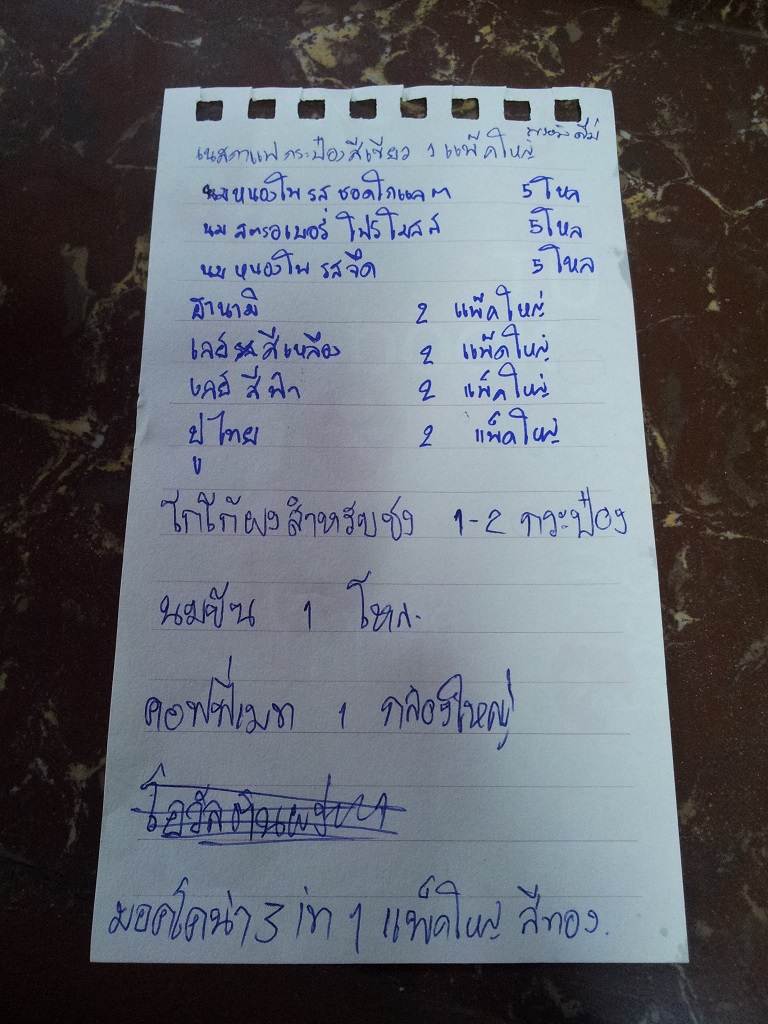 เนสกาแฟ กระป๋องสีเขียว 1 แพ็คใหญ่
นมหนองโพ รส ชอคโกแลต 5 โหล
นม สตรอเบอรี่ โฟร์โมสส์ 5 โหล
นม หนองโพ รสจืด 5 โหล
ฮานามิ 2 แพ๊คใหญ่
เลย์ สีเหลือง 2 แพ๊คใหญ่
เลย์ สีฟ้า 2 แพ็คใหญ่
ปูไทย 2 แพ็คใหญ่
โกโก้ผงสำหรับชง 1-2 กระป๋อง
นมข้น 1 โหล.
คอฟฟี่เมท 1 กล่องใหญ่
มอคโคน่า 3 in 1 แพ็คใหญ่ สีทอง.